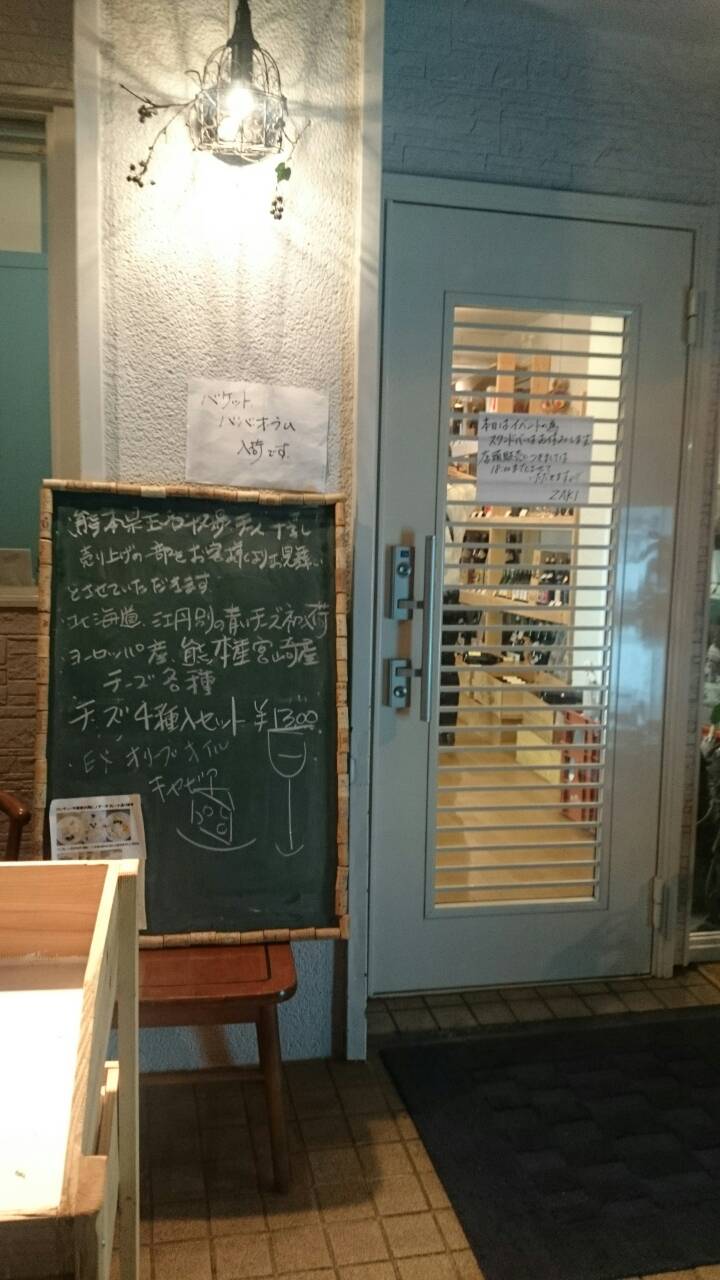 バケット
パンペオラム
入荷です
本日はイベントの為
スタンドバーはお休みします
店頭販売につきましては
18:00までとさせて
いただきます
ZAKI
熊本県玉名
売り上げの一部をお客様よりお見舞い
とさせていただきます
・北海道、江丹別の青いチーズ初入荷
・ヨーロッパ産、熊本産宮崎産
チーズ各種
チーズ4種入セット ¥1300
・EX オリーブオイル
キャビア